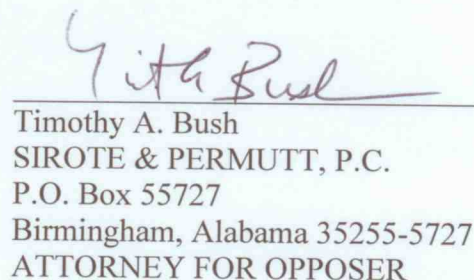 Timothy A. Bush
SIROTE & PERMUTT, P.C.
P.O. Box 55727
Birmingham, Alabama 35255-5727
ATTORNEY FOR OPPOSER